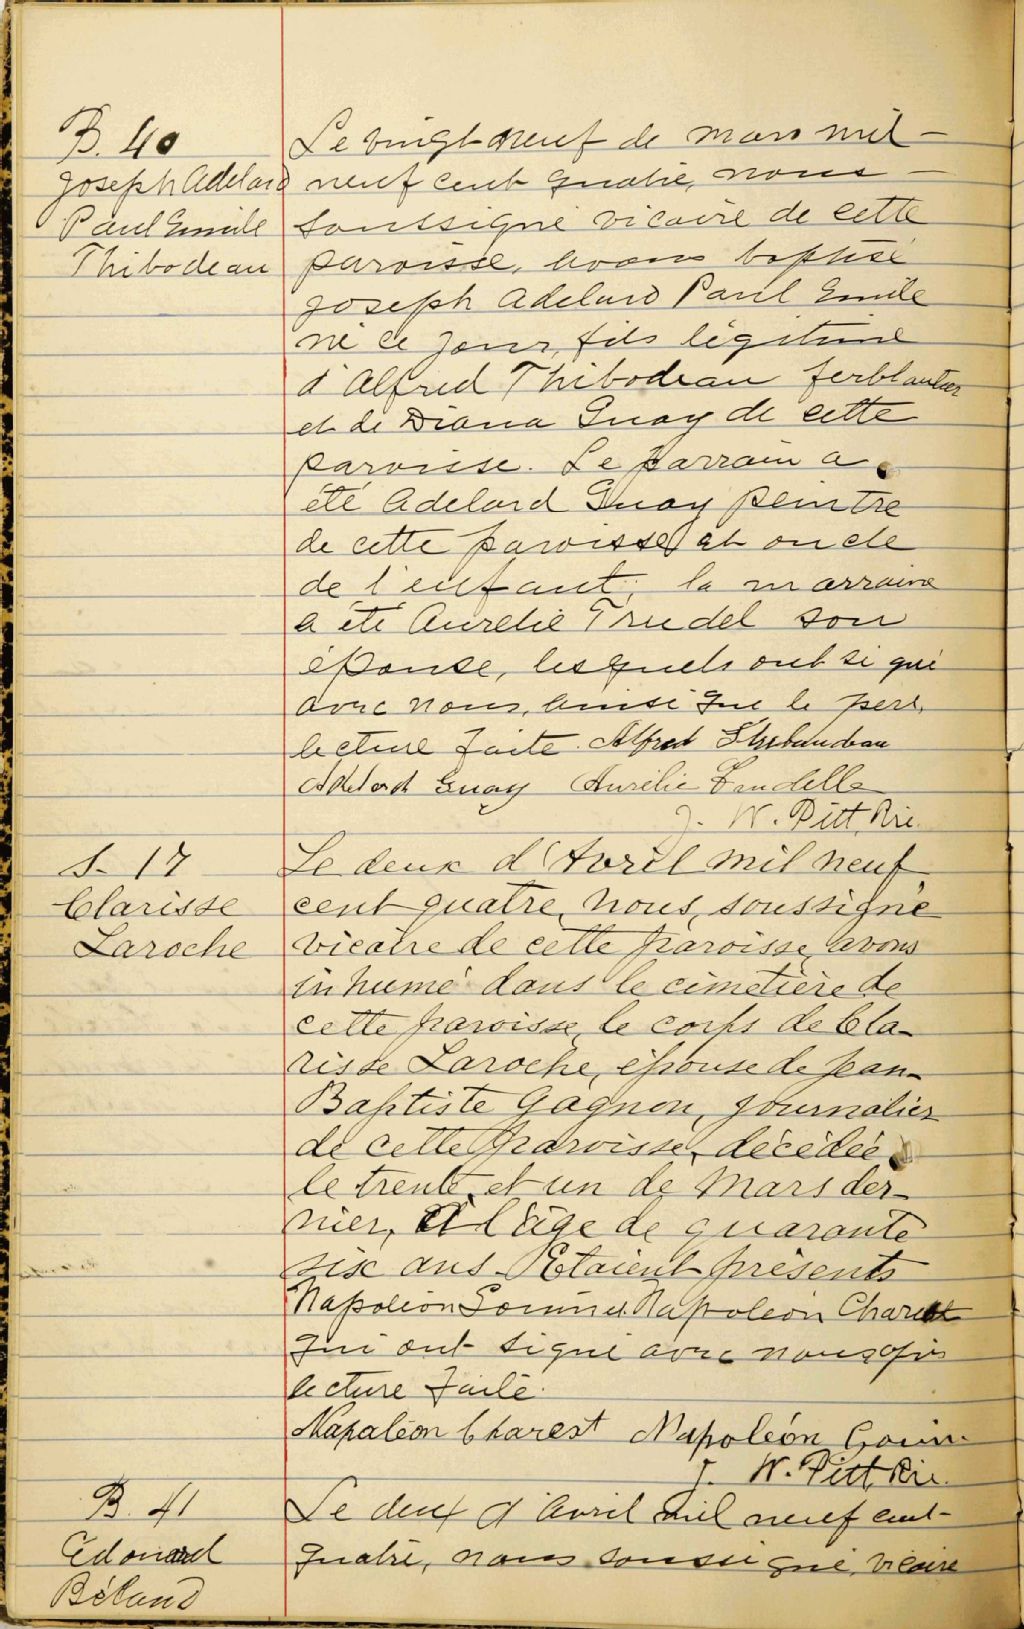 B. 40
Joseph Adelard
Paul Emile
Thibodeau
Le vingt neuf de mars mil
neuf cent quatre, nous
soussigné vicaire de cette
paroisse, avons baptisé
Joseph Adelard Paul Emile
né ce jour, fils légitime
d'Alfred Thibodeau ferblantier
et de Diana Guay de cette
paroisse. Le parrain a
été Adelard Guay peintre
de cette paroisse et oncle
de l'enfant; la marraine
a été Aurelie Trudel son
épouse, lesquels ont signé
avec nous, ainsi que le père,
lecture faite. Alfred Thibaudeau
Adelard Guay Aurélie Trudelle
J. W. Pitt, Ptre.
S. 17
Clarisse
Laroche
Le deux d'Avril mil neuf
cent quatre, nous, soussigné
vicaire de cette paroisse, avons
inhumé dans le cimetière de
cette paroisse, le corps de Cla-
risse Laroche, épouse de Jean-
Baptiste Gagnon, journalier
de cette paroisse, décédée
le trente et un de Mars der-
nier, à l'âge de quarante
six ans. Etaient présents
Napoléon Napoléon Charest
qui ont signé avec nous après
lecture faite.
Napoléon Charest Napoléon
J. W. Pitt, Ptre.
B. 41
Edouard
Béland
Le deux d'Avril mil neuf cent-
quatre, nous soussigné, vicaire